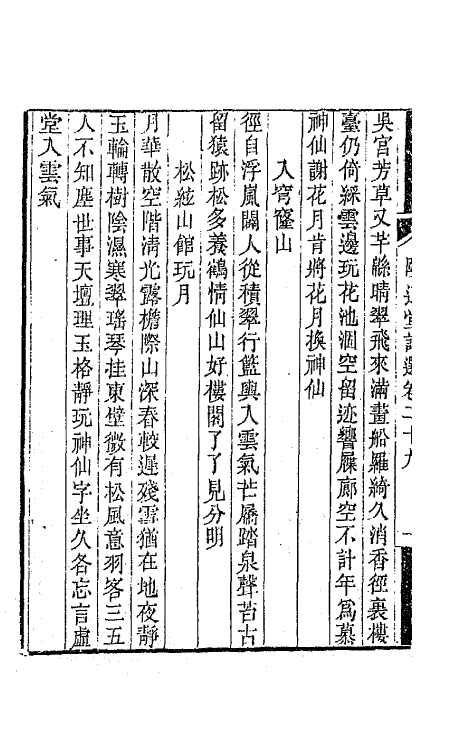 吳宮芳草又芊緜晴翠飛來滿畫船羅綺久消香徑裏樓
臺仍倚綵雲邊玩花池涸空留迹響屧廊空不計年爲慕
神仙謝花月肯將花月換神仙
入穹窿山
徑自浮嵐闢人從積翠行籃輿入雲氣芒屩踏泉聲苔古
留猿跡松多養鶴情仙山好樓閣了了見分明
松絃山館玩月
月華散空階清光露檐際山深春較遲殘雪猶在地夜靜
玉輪轉樹陰濕寒翠瑤琴挂東壁微有松風意羽客三五
人不知塵世事天壇理玉格靜玩神仙字坐久各忘言虛
堂入雲氣
堂詩選卷二十九
一